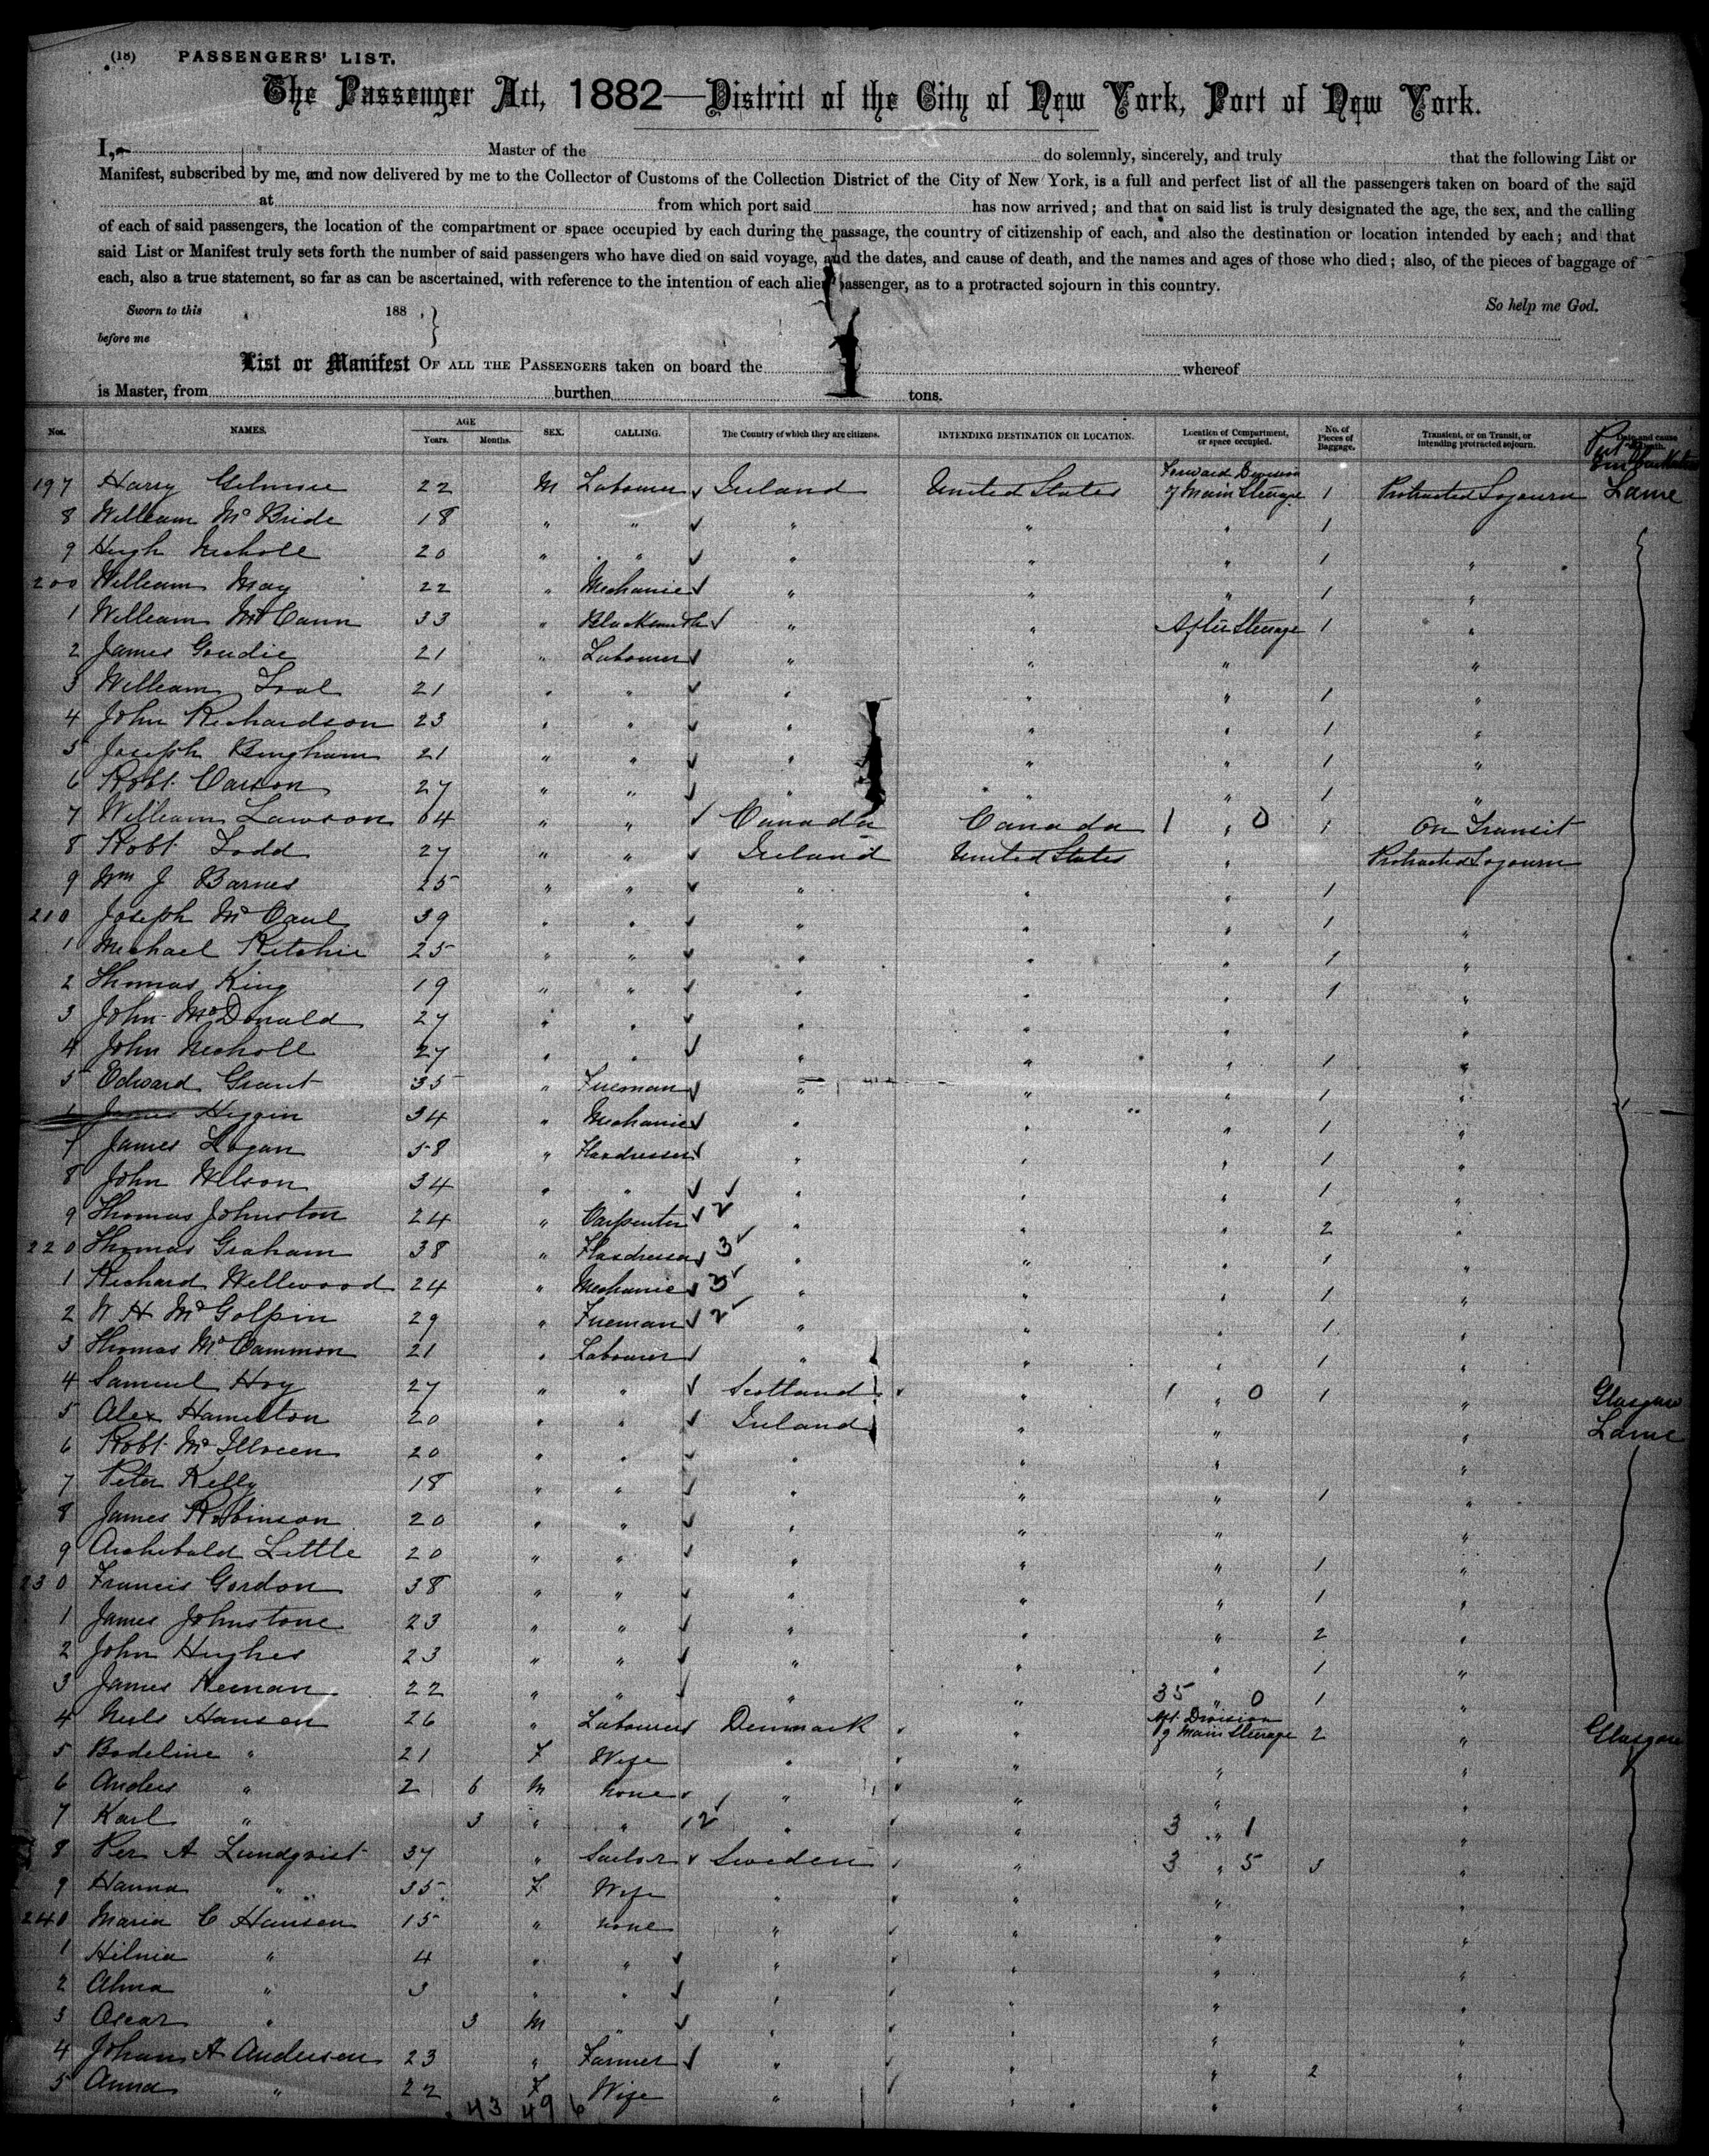 (18) PASSENGERS' LIST.
The Passenger Act, 1882—District of the City of New York, Port of New York.
I, Master of the do solemnly, sincerely, and truly that the following List or
Manifest, subscribed by me, and now delivered by me to the Collector of Customs of the Collection District of the City of New York, is a full and perfect list of all the passengers taken on board of the said
at from which port said has now arrived; and that on said list is truly designated the age, the sex, and the calling
of each of said passengers, the location of the compartment or space occupied by each during the passage, the country of citizenship of each, and also the destination or location intended by each; and that
said List or Manifest truly sets forth the number of said passengers who have died on said voyage, and the dates, and cause of death, and the names and ages of those who died; also, of the pieces of baggage of
each, also a true statement, so far as can be ascertained, with reference to the intention of each alien passenger, as to a protracted sojourn in this country.
So help me God.
Sworn to this 188 , }
before me
List or Manifest OF ALL THE PASSENGERS taken on board the whereof
is Master, from burthen tons.
Nos. NAMES. AGE Years. Months. SEX. CALLING. The Country of which they are citizens. INTENDING DESTINATION OR LOCATION. Location of Compartment, or space occupied. No. of Pieces of Baggage. Transient, or on Transit, or intending protracted sojourn. Date and cause of Death. Port of Embarkation
197 Harry Gilmore 22 M Labourer Ireland United States Forward Division of Main Steerage 1 Protracted Sojourn Larne
8 William McBride 18 " " " " " 1 "
9 Hugh Nicholl 20 " " " " " 1 "
200 William May 22 " Mechanic " " " 1 "
1 William McCann 33 " Blacksmith " " After Steerage 1 "
2 James Goudie 21 " Labourer " " " "
3 William 21 " " " " " 1 "
4 John Richardson 23 " " " " " 1 "
5 Joseph Bingham 21 " " " " " 1 "
6 Robt. Carson 27 " " " " " 1 "
7 William Lawson 64 " " Canada Canada 1 " 0 1 On Transit
8 Robt. Todd 27 " " Ireland United States " Protracted Sojourn
9 Wm J Barnes 25 " " " " " 1 "
210 Joseph McCaul 39 " " " " " 1 "
1 Michael Ritchie 25 " " " " " 1 "
2 Thomas King 19 " " " " " 1 "
3 John McDonald 27 " " " " " "
4 John Nicholl 27 " " " " " 1 "
5 Edward Grant 35 " Fireman " " " 1 "
6 James Higgin 34 " Mechanic " " " 1 "
7 James Logan 58 " Flaxdresser " " " 1 "
8 John Wilson 34 " " " " " 1 "
9 Thomas Johnston 24 " Carpenter 2 " " " 2 "
220 Thomas Graham 38 " Flaxdresser 3 " " " 1 "
1 Richard Wellwood 24 " Mechanic 3 " " " 1 "
2 W H McGolpin 29 " Fireman 2 " " " 1 "
3 Thomas McCammon 21 " Labourer " " " 1 "
4 Samuel Hoy 27 " " Scotland " 1 " 0 1 " Glasgow
5 Alex Hamilton 20 " " Ireland " " " Larne
6 Robt. McIlveen 20 " " " " " "
7 Peter Kelly 18 " " " " " 1 "
8 James Robinson 20 " " " " " "
9 Archibald Little 20 " " " " " 1 "
230 Francis Gordon 38 " " " " " 1 "
1 James Johnstone 23 " " " " " 2 "
2 John Hughes 23 " " " " " 1 "
3 James Heenan 22 " " " " 35 " 0 1 "
4 Niels Hansen 26 " Labourer Denmark " Aft Division of Main Steerage 2 " Glasgow
5 Bodeline " 21 F Wife " " " "
6 Anders " 2 6 M none " " " "
7 Karl " 3 " " 2 " " 3 " 1 "
8 Per A Lundqvist 37 " Sailor Sweden " 3 " 5 3 "
9 Hanna " 35 F Wife " " " "
240 Maria C Hansen 15 " none " " " "
1 Hilma " 4 " " " " " "
2 Alma " 3 " " " " " "
3 Oscar " 3 M " " " " "
4 Johan A Andersen 23 " Farmer " " " 2 "
5 Anna " 22 F Wife " " " "
43 49 6